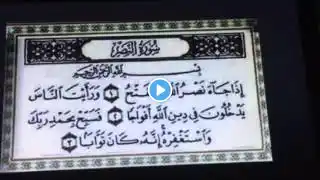 سُورَةُ النَّصْرِ
بِسْمِ اللَّهِ الرَّحْمَٰنِ الرَّحِيمِ
إِذَا جَآءَ نَصْرُ ۝١ وَرَأَيْتَ النَّاسَ
يَدْخُلُونَ فِي دِينِ اللَّهِ أَفْوَاجًا ۝٢ فَسَبِّحْ بِحَمْدِ رَبِّكَ
وَاسْتَغْفِرْهُ إِنَّهُ كَانَ تَوَّابًا ۝٣